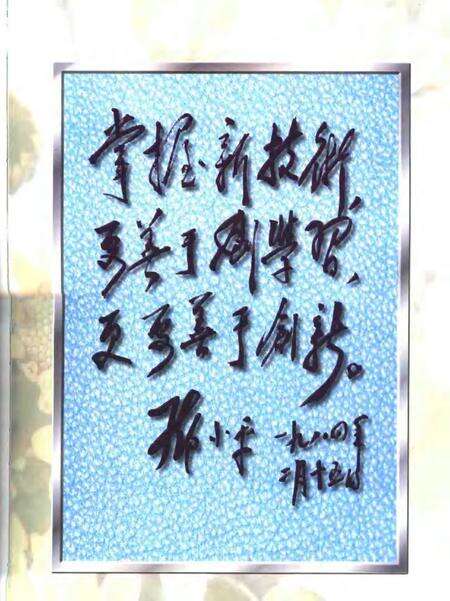 掌握新技術,
要善于學習、
更要善于創新。
邓小平 一九八四年
二月十五日